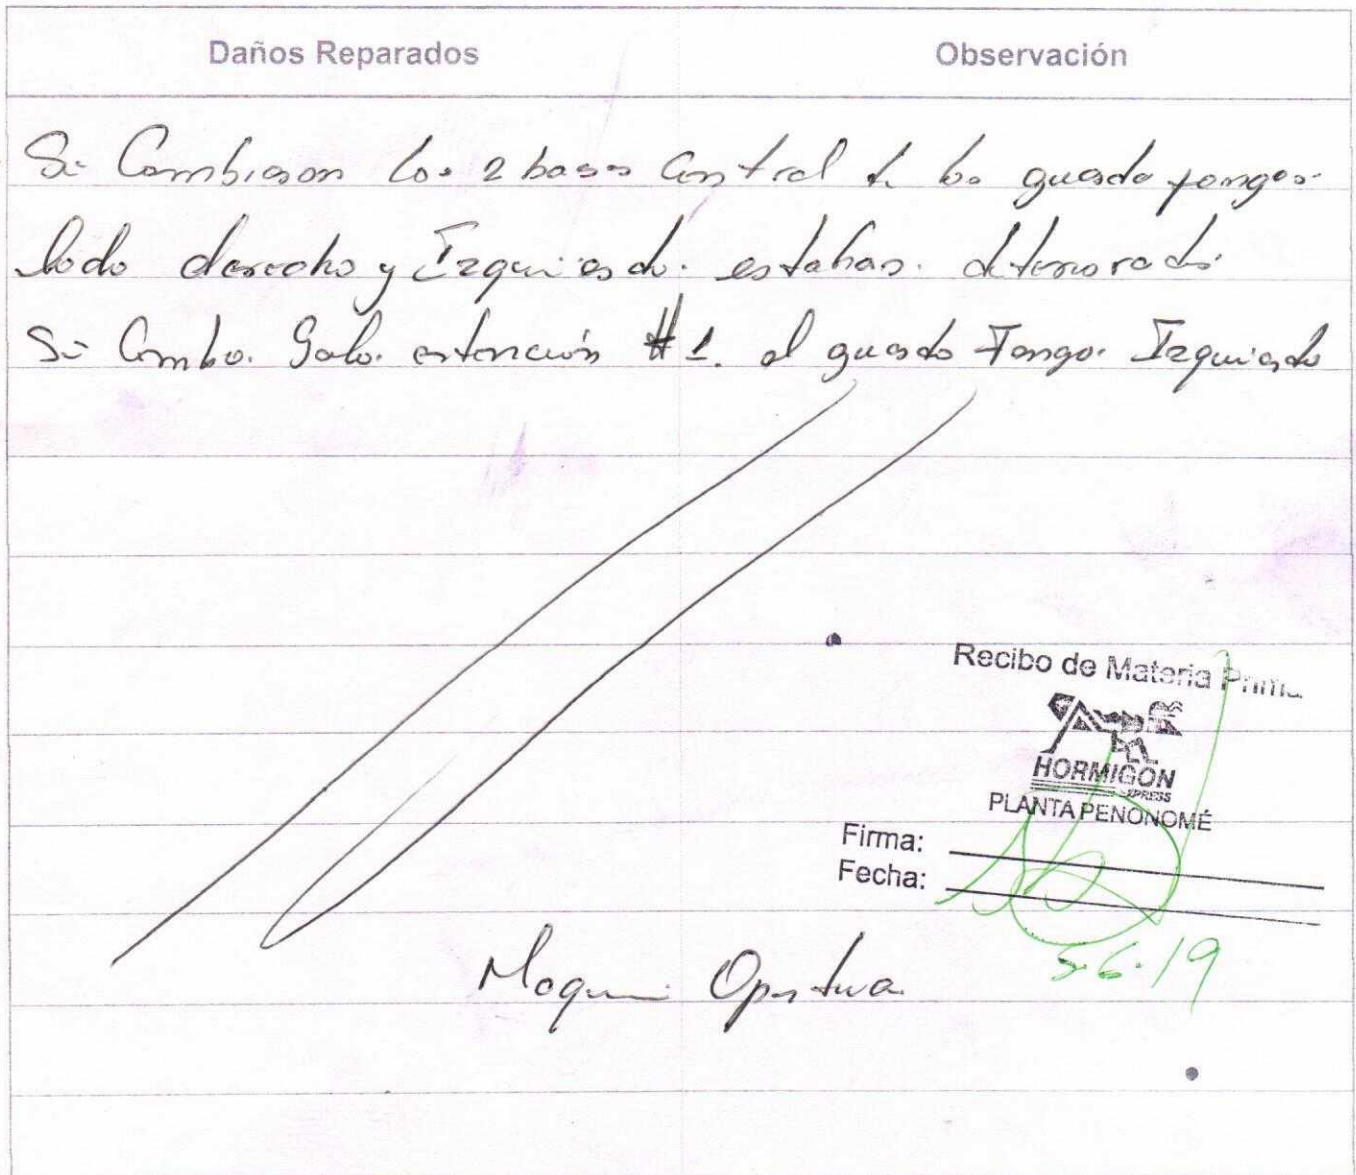 Daños Reparados Observación
Se Cambiaron los 2 bases Central de los guarda fangos
lado derecho y Izquierdo. estaban. deteriorado.
Se Cambio. Galo. extención #1. al guarda Fango. Izquierdo
Recibo de Materia Prima
HORMIGÓN
XPRESS
PLANTA PENONOMÉ
Firma:
Fecha:
5-6-19
Maquina Operativa